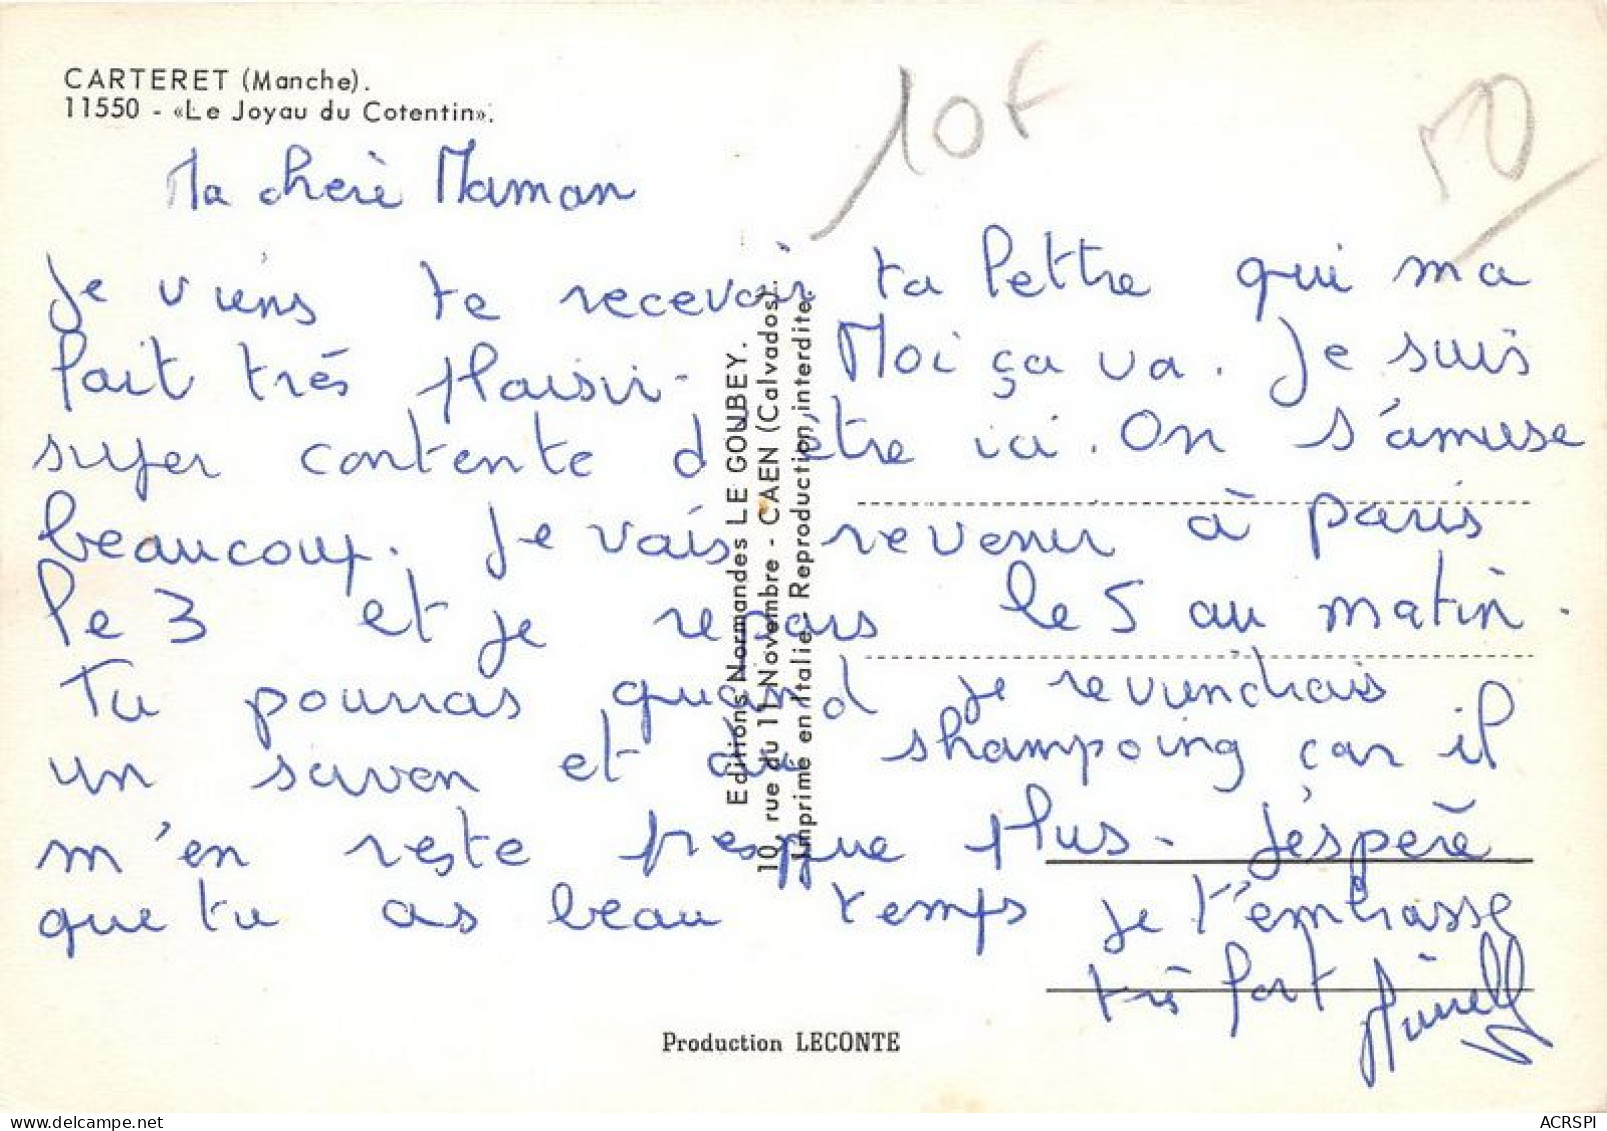 CARTERET (Manche).
11550 - «Le Joyau du Cotentin».
10F
Ma cherè Maman
Je viens te recevoir ta lettre qui ma
fait très plaisir. Moi ça va. Je suis
super contente d'être ici. On s'amuse
beaucoup. Je vais revenir à paris
le 3 et je repars le 5 au matin.
Tu pourras quand je reviendrais
un savon et du shampoing car il
m'en reste presque plus. J'espère
que tu as beau temps je t'embrasse
très fort
Editions Normandes LE GOUBEY.
10, rue du 11 Novembre - CAEN (Calvados).
Imprimé en Italie. Reproduction interdite.
Production LECONTE
ACRSPI